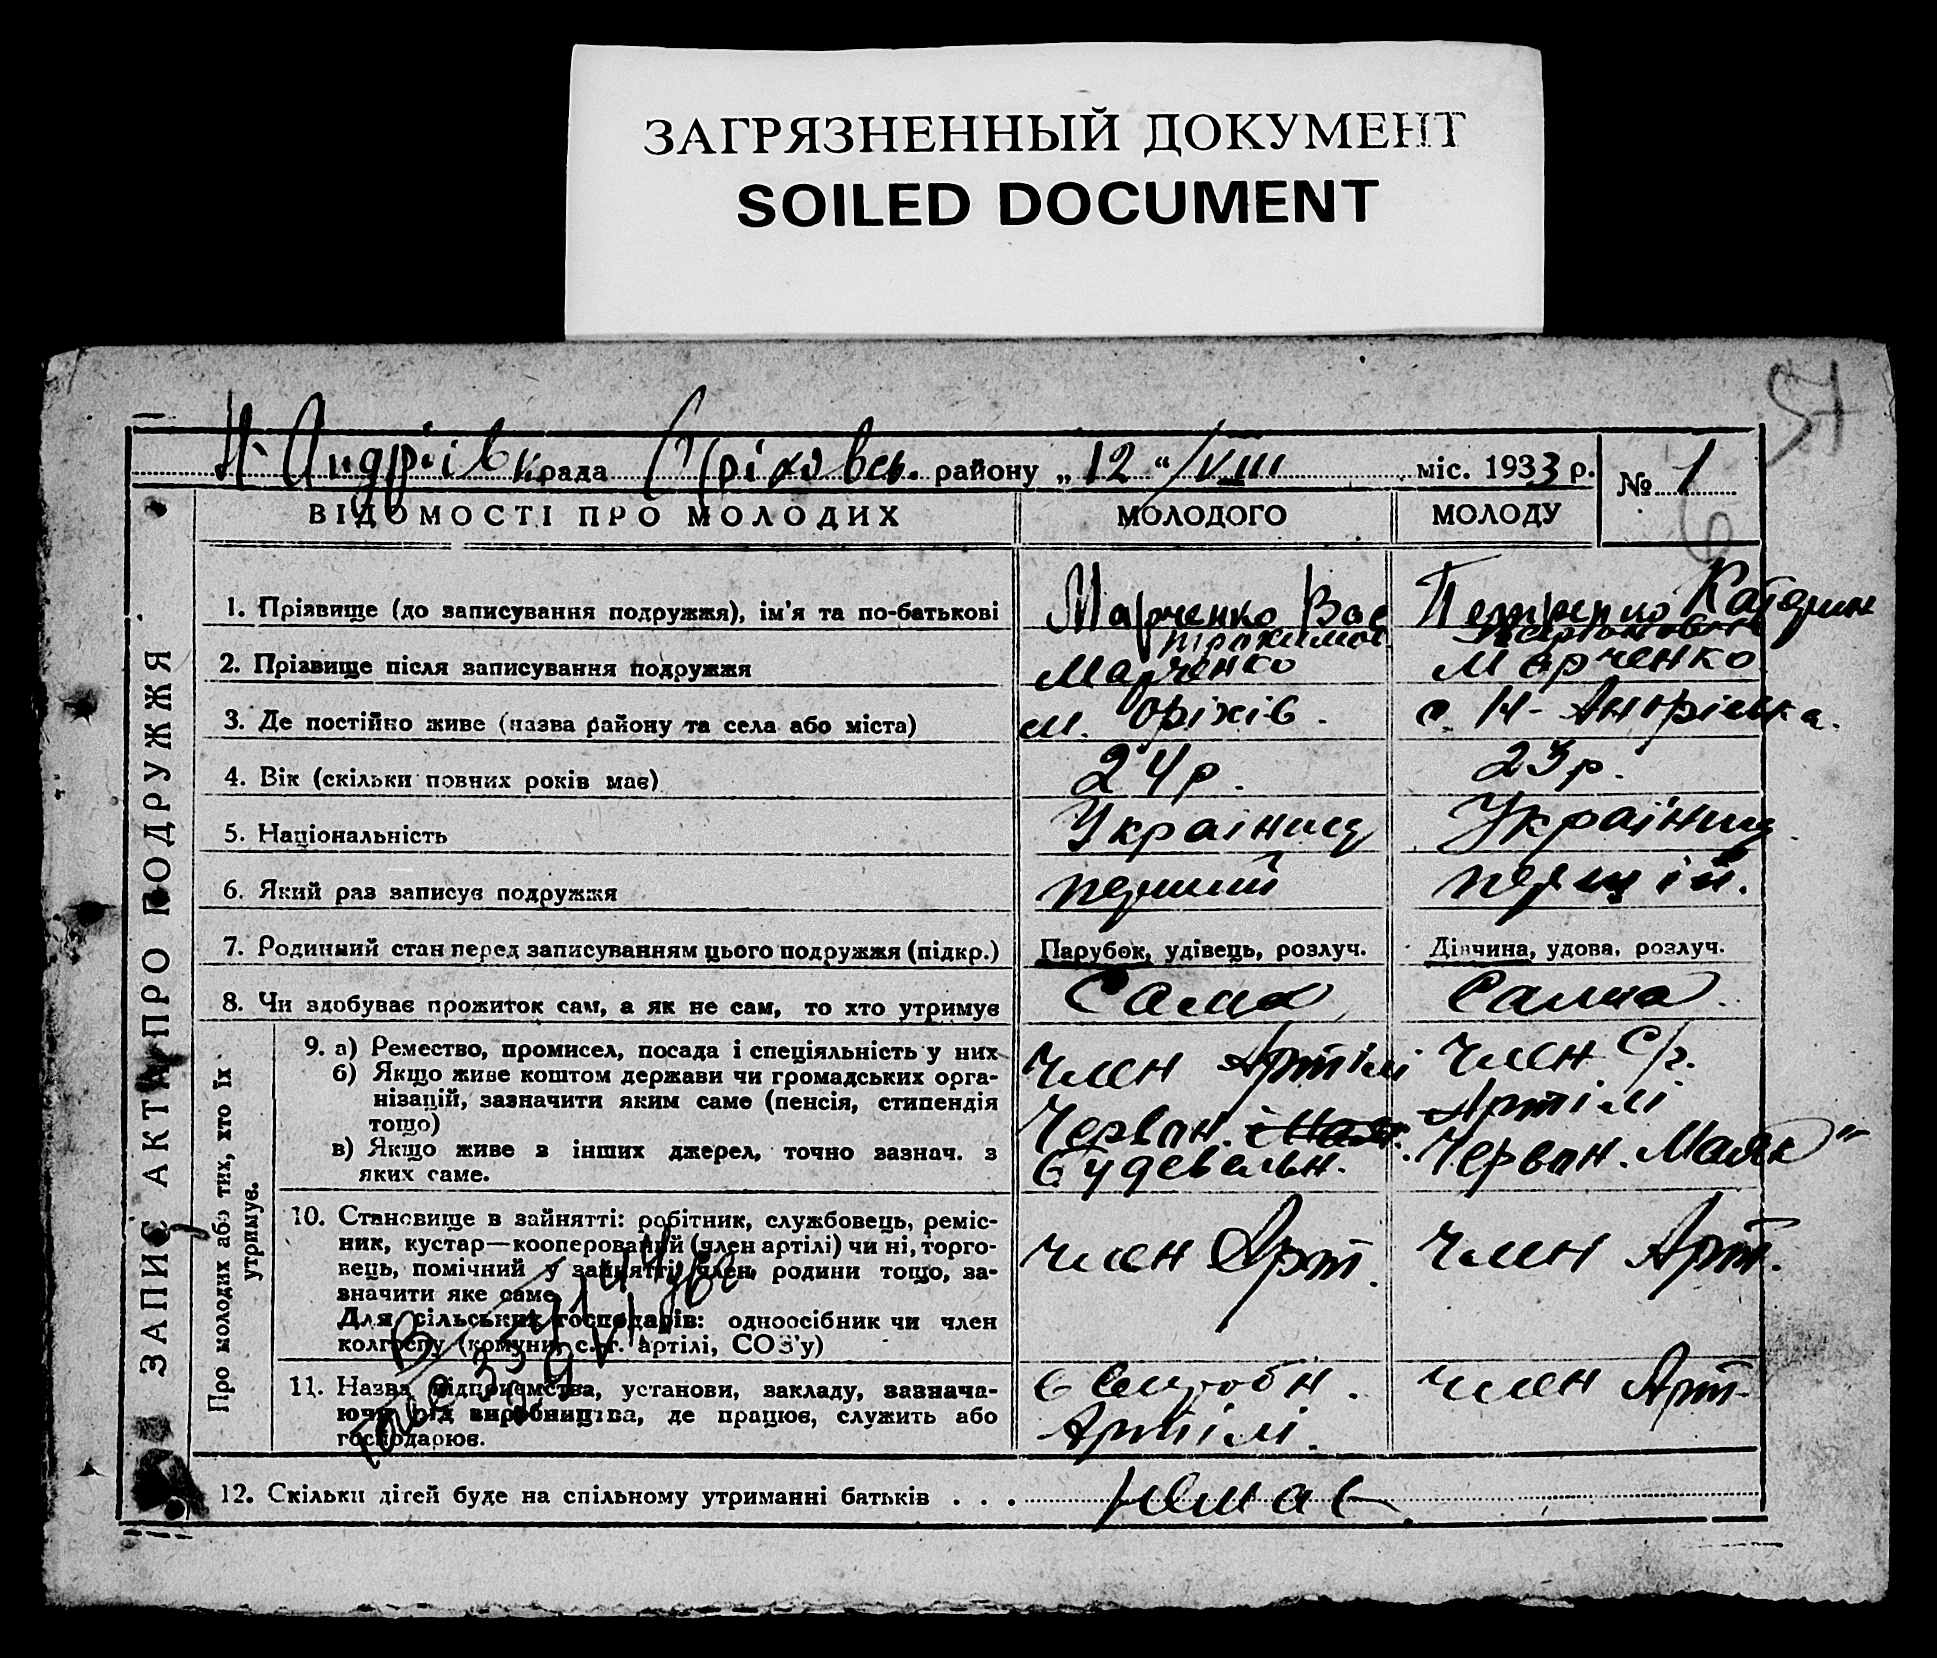 ЗАГРЯЗНЕННЫЙ ДОКУМЕНТ
SOILED DOCUMENT
Н. Андріівк. рада Оріховськ. району „12“ VIII міс. 1933 р.
№ 1
ВІДОМОСТІ ПРО МОЛОДИХ МОЛОДОГО МОЛОДУ
ЗАПИС АКТА ПРО ПОДРУЖЖЯ
1. Прізвище (до записування подружжя), ім'я та по-батькові Марченко Вас Катерин
2. Прізвище після записування подружжя Марченко Марченко
3. Де постійно живе (назва району та села або міста) м. Оріхів. с. Н-
4. Вік (скільки повних років має) 24 р. 23 р.
5. Національність Українец Українец
6. Який раз записує подружжя перший першій.
7. Родинний стан перед записуванням цього подружжя (підкр.) Парубок, удівець, розлуч. Дівчина, удова, розлуч.
8. Чи здобуває прожиток сам, а як не сам, то хто утримує Сама Сама
Про молодих або тих, хто їх утримує.
9. а) Ремество, промисел, посада і спеціяльність у них
б) Якщо живе коштом держави чи громадських орга-
нізацій, зазначити яким саме (пенсія, стипендія
тощо)
в) Якщо живе з інших джерел, точно зазнач. з
яких саме.
член Артілі
Червон.
Будевельн.
член С/г.
Артілі
Червон. Маяк"
10. Становище в зайнятті: робітник, службовець, реміс-
ник, кустар—кооперований (член артілі) чи ні, торго-
вець, помічний у зайнятті член родини тощо, за-
значити яке саме.
Для сільських господарів: одноосібник чи член
колгоспу (комуни, с.-г. артілі, СОЗ'у)
член Арт.
член Арт.
11. Назва підприємства, установи, закладу, зазнача-
ючи рід виробництва, де працює, служить або
господарює.
в
Артілі.
член Арт.
12. Скільки дітей буде на спільному утриманні батьків . . . Немає